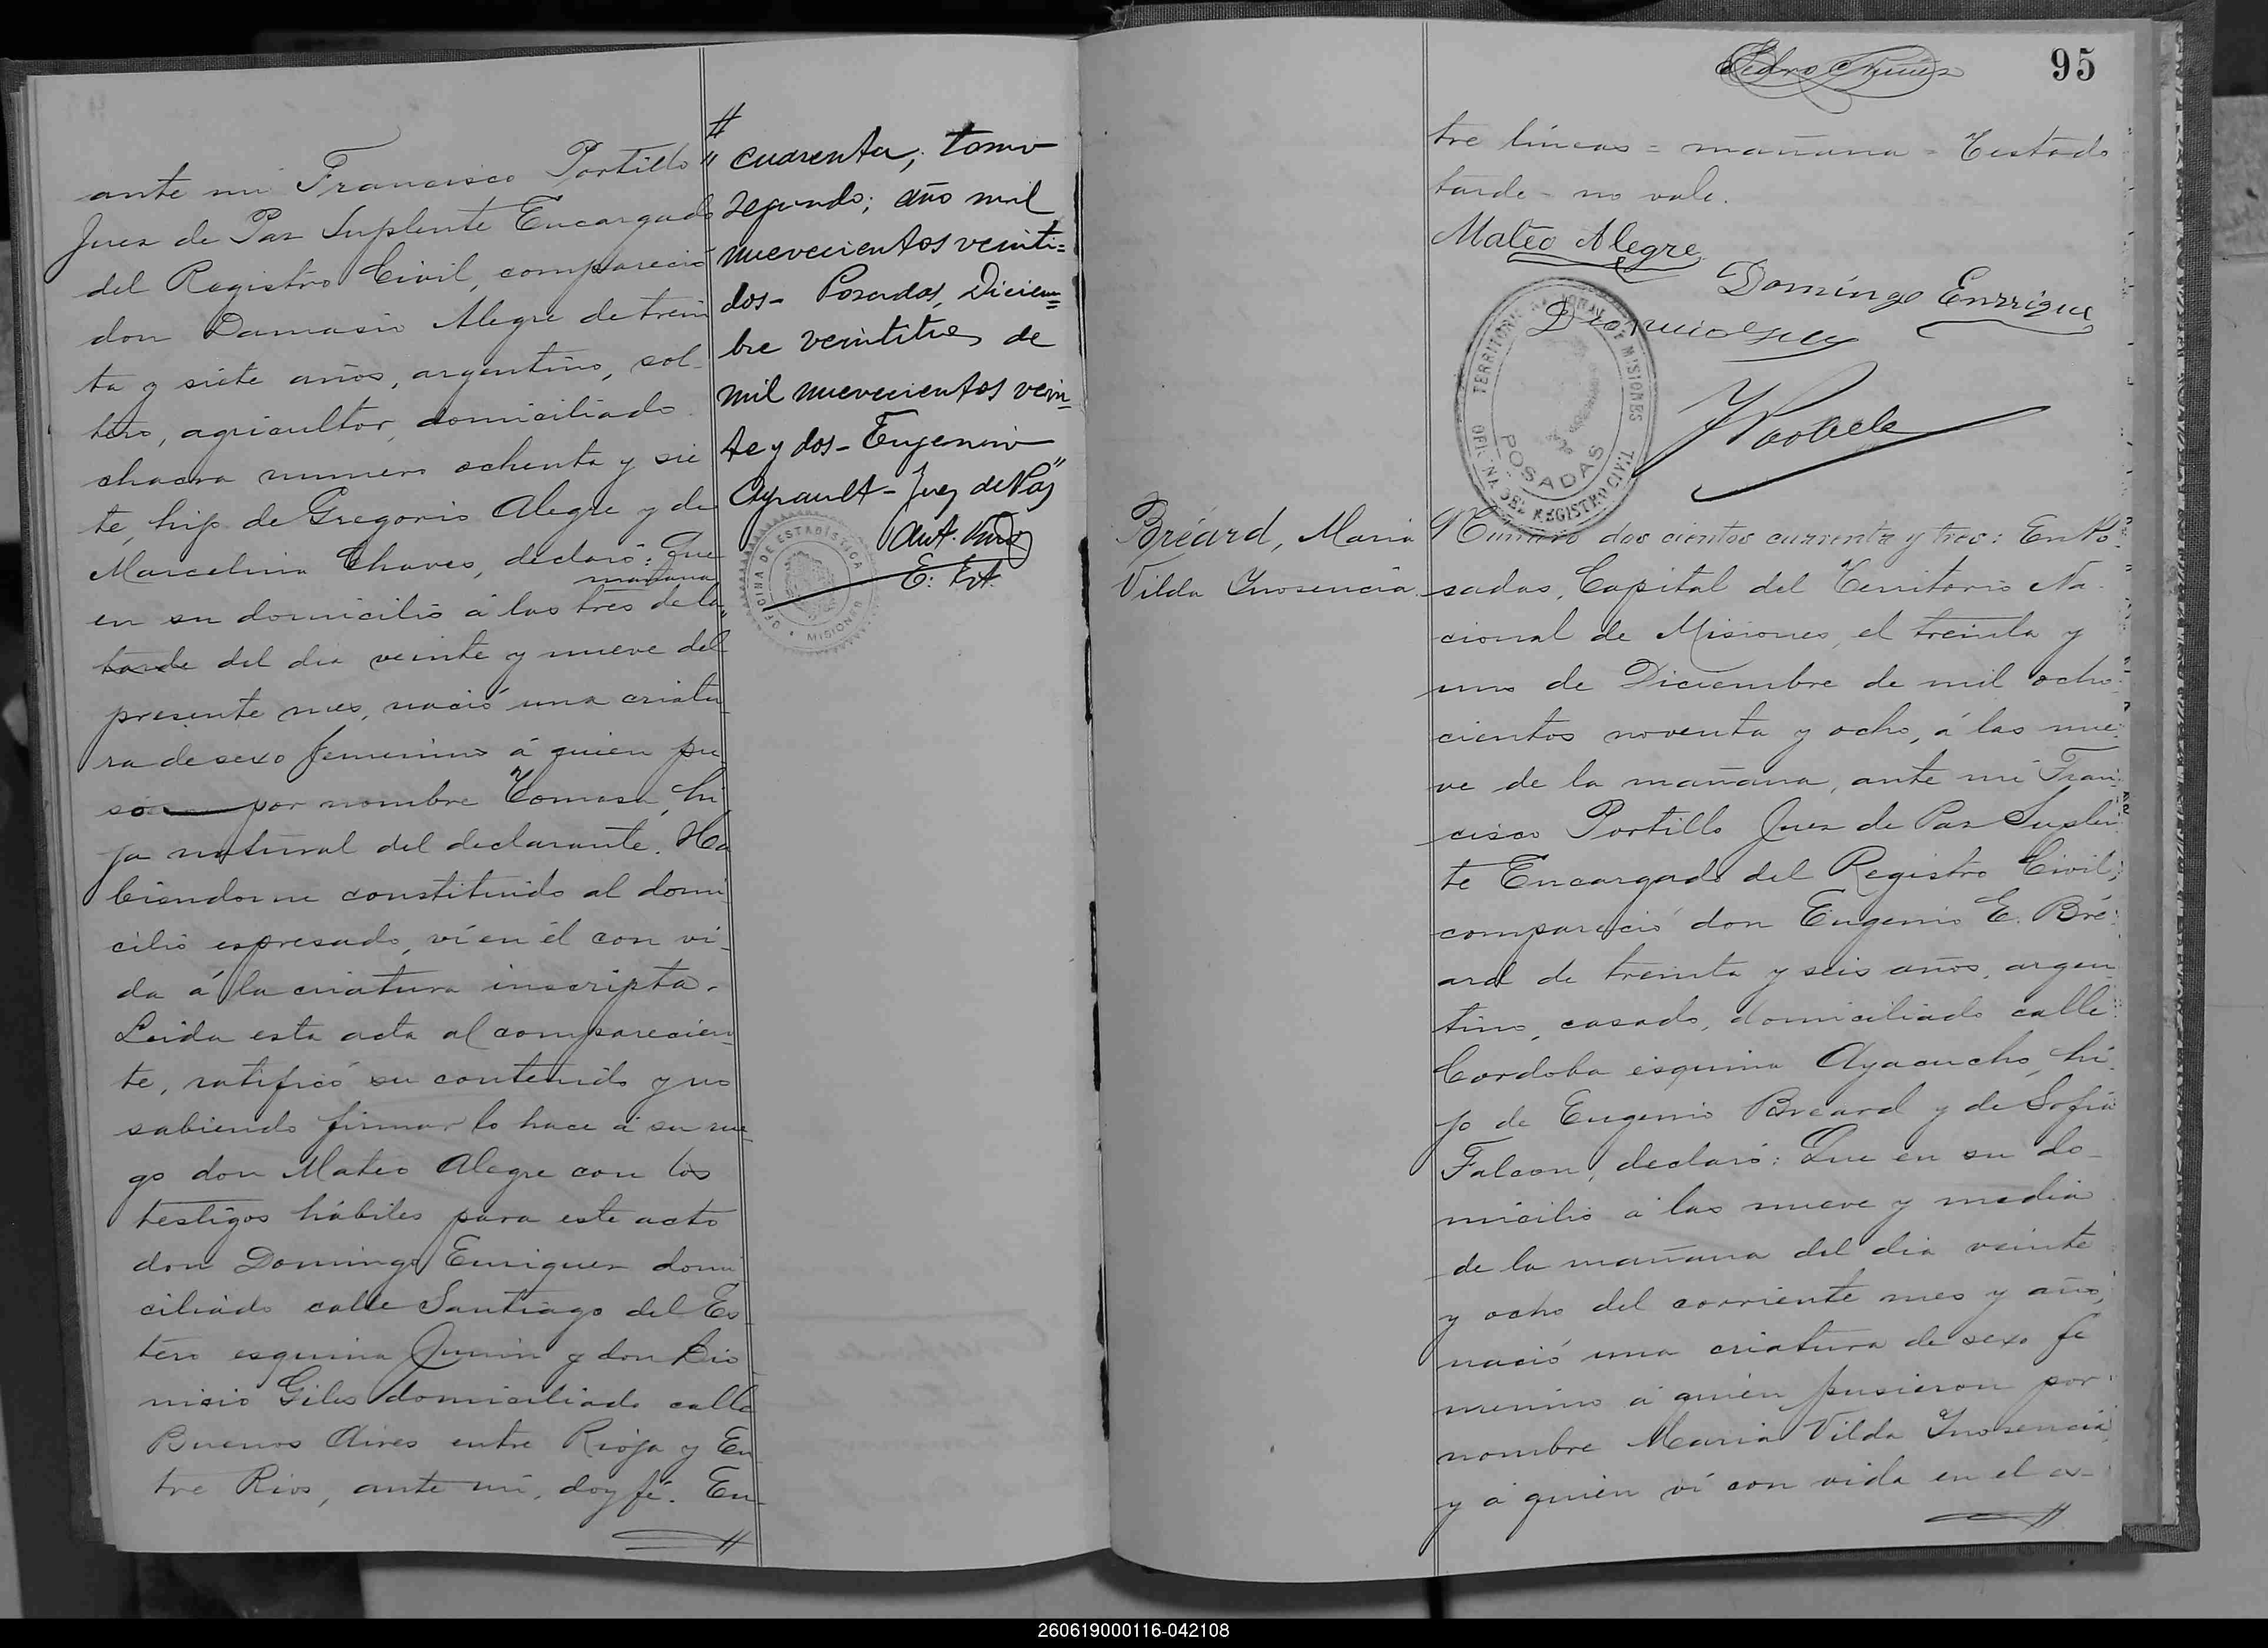 ante mi Francisco Portillo
Juez de Paz Suplente Encargado
del Registro Civil, compareció
don Damasio Alegre de trein
ta y siete años, argentino, sol-
tero, agricultor, domiciliado
chacra numero ochenta y sie
te, hijo de Gregorio Alegre y de
Marcelina Chaves, declaró: Que
mañana
en su domicilio á las tres de la
tarde del dia veinte y nueve del
presente mes, nació una criatu
ra de sexo femenino á quien pu
so por nombre Tomasa, hi
ja natural del declarante. Ha
biendome constituido al domi
cilio espresado, ví en él con vi-
da á la criatura inscripta.
Leida esta acta al comparecien
te, ratificó su contenido y no
sabiendo firmar lo hace á su rue-
go don Mateo Alegre con los
testigos hábiles para este acto
don Domingo Enriquez domi
ciliado calle Santiago del Es
tero esquina Junin y don Dio
nisio Giles domiciliado calle
Buenos Aires entre Rioja y En
tre Rios, ante mi, doy fé. En-
cuarenta; tomo
segundo; año mil
nuevecientos veinti=
dos- Posadas, Diciem=
bre veintitres de
mil nuevecientos vein-
te y dos- Eugenio
Ayrault- Juez de Paz
OFICINA DE ESTADÍSTICA
MISIONES
95
tre líneas = mañana = Testado
tarde - no vale.
Mateo Alegre
Domingo Enrriquez
TERRITORIO NACIONAL DE MISIONES
POSADAS
OFICINA DEL REGISTRO CIVIL
Bréard, Maria
Vilda Ynosencia.
Número dos cientos cuarenta y tres: En Po-
sadas, Capital del Territorio Na-
cional de Misiones, el treinta y
uno de Diciembre de mil ocho-
cientos noventa y ocho, á las nue-
ve de la mañana, ante mi Fran-
cisco Portillo Juez de Paz Suplen
te Encargado del Registro Civil,
compareció don Eugenio E. Bré-
ard de treinta y seis años, argen
tino, casado, domiciliado calle
Cordoba esquina Ayacucho, hi
jo de Eugenio Breard y de Sofia
Falcon, declaró: Que en su do-
micilio a las nueve y media
de la mañana del dia veinte
y ocho del corriente mes y año,
nació una criatura de sexo fe
menino á quien pusieron por
nombre Maria Vilda Ynosencia
y á quien ví con vida en el es-
260619000116-042108